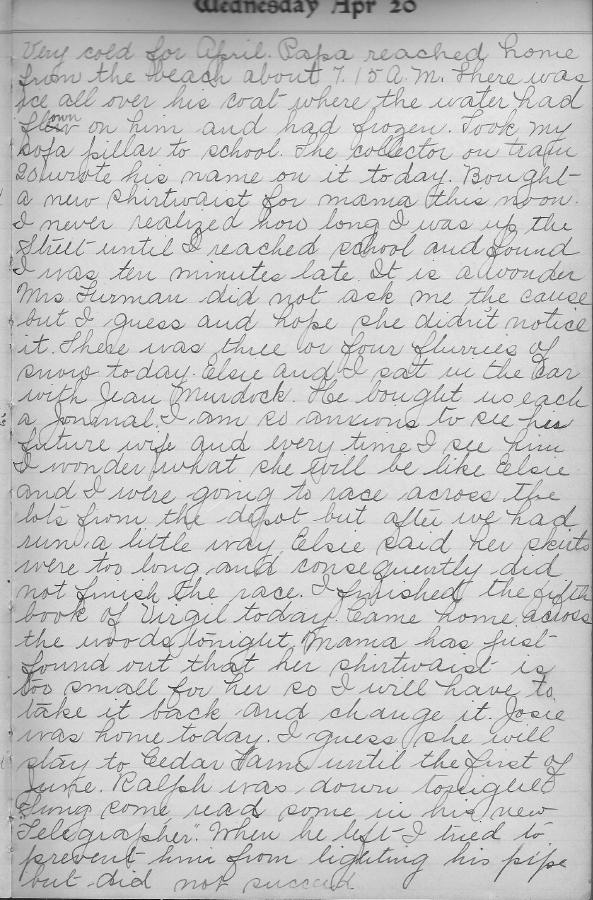 Wednesday Apr 20
Very cold for April. Papa reached home
from the beach about 7.15 A.M. There was
ice all over his coat where the water had
flown on him and had frozen. Took my
sofa pillar to school. The collector on train
20 wrote his name on it today. Bought
a new shirtwaist for mama this noon.
I never realized how long I was up the
street until I reached school and found
I was ten minutes late. It is a wonder
Mrs Furman did not ask me the cause
but I guess and hope she didn't notice
it. There was three or four flurries of
snow today. Elsie and I sat in the car
with Jean Murdock. He bought us each
a Journal. I am so anxious to see his
future wife and every time I see him
I wonder what she will be like. Elsie
and I were going to race across the
lots from the depot but after we had
run a little way Elsie said her skirts
were too long and consequently did
not finish the race. I finished the fifth
book of Virgil today. Came home across
the woods tonight. Mama has just
found out that her shirtwaist is
too small for her so I will have to
take it back and change it. Josie
was home today. I guess she will
stay to Cedar Farm until the first of
June. Ralph was down tonight
some read some in his new
Telegrapher". When he left I tried to
prevent him from lighting his pipe
but did not succeed